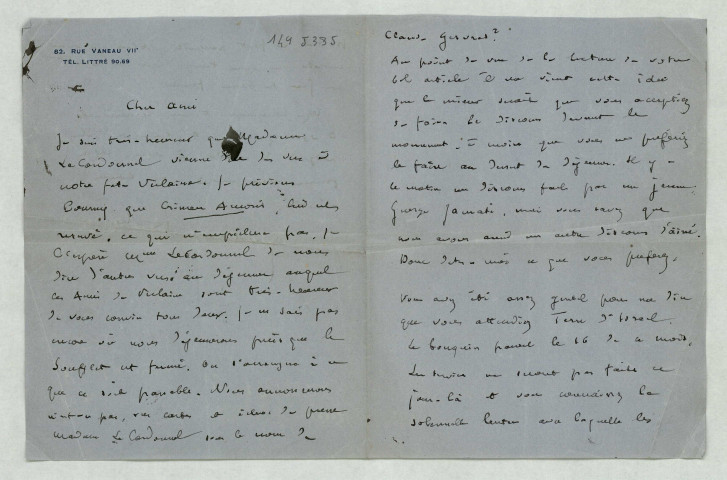 149 5335
82, RUE VANEAU VIIe
TÉL. LITTRÉ 90.69
Cher Ami
Je suis très-heureux que Madame
Le Cardonnel vienne dire des vers à
notre fête Verlaine. Je préviens
que Crimen Amoris lui est
réservé, ce qui n'empêchera pas, je
l'espère Mme Le Cardonnel de nous
dire d'autres vers au déjeuner auquel
les Amis de Verlaine sont très-heureux
de vous convier tous deux. Je ne sais pas
encore où nous déjeunerons puisque le
Soufflot est fermé. On s'arrangera à ce
que ce soit passable. Nous annoncerons
n'est-ce pas, sur cartes et échos de presse
madame Le Cardonnel sous le nom de
Claude Gervais ?
Au point de vue de la lecture de votre
bel article il me vient cette idée
que le mieux serait que vous acceptiez
de faire le discours devant le
monument : à moins que vous ne préfériez
le faire au dessert du déjeuner. Il y a
le matin un discours fait par un jeune,
George Jamati, mais vous savez que
nous avons aussi un autre discours d'aîné.
Donc dites-moi ce que vous préférez.
Vous avez été assez gentil pour me dire
que vous attendiez Terre d'Israël.
Le bouquin paraît le 16 de ce mois.
Les services ne seront pas faits ce
jour-là et vous connaissez la
solennelle lenteur avec laquelle les